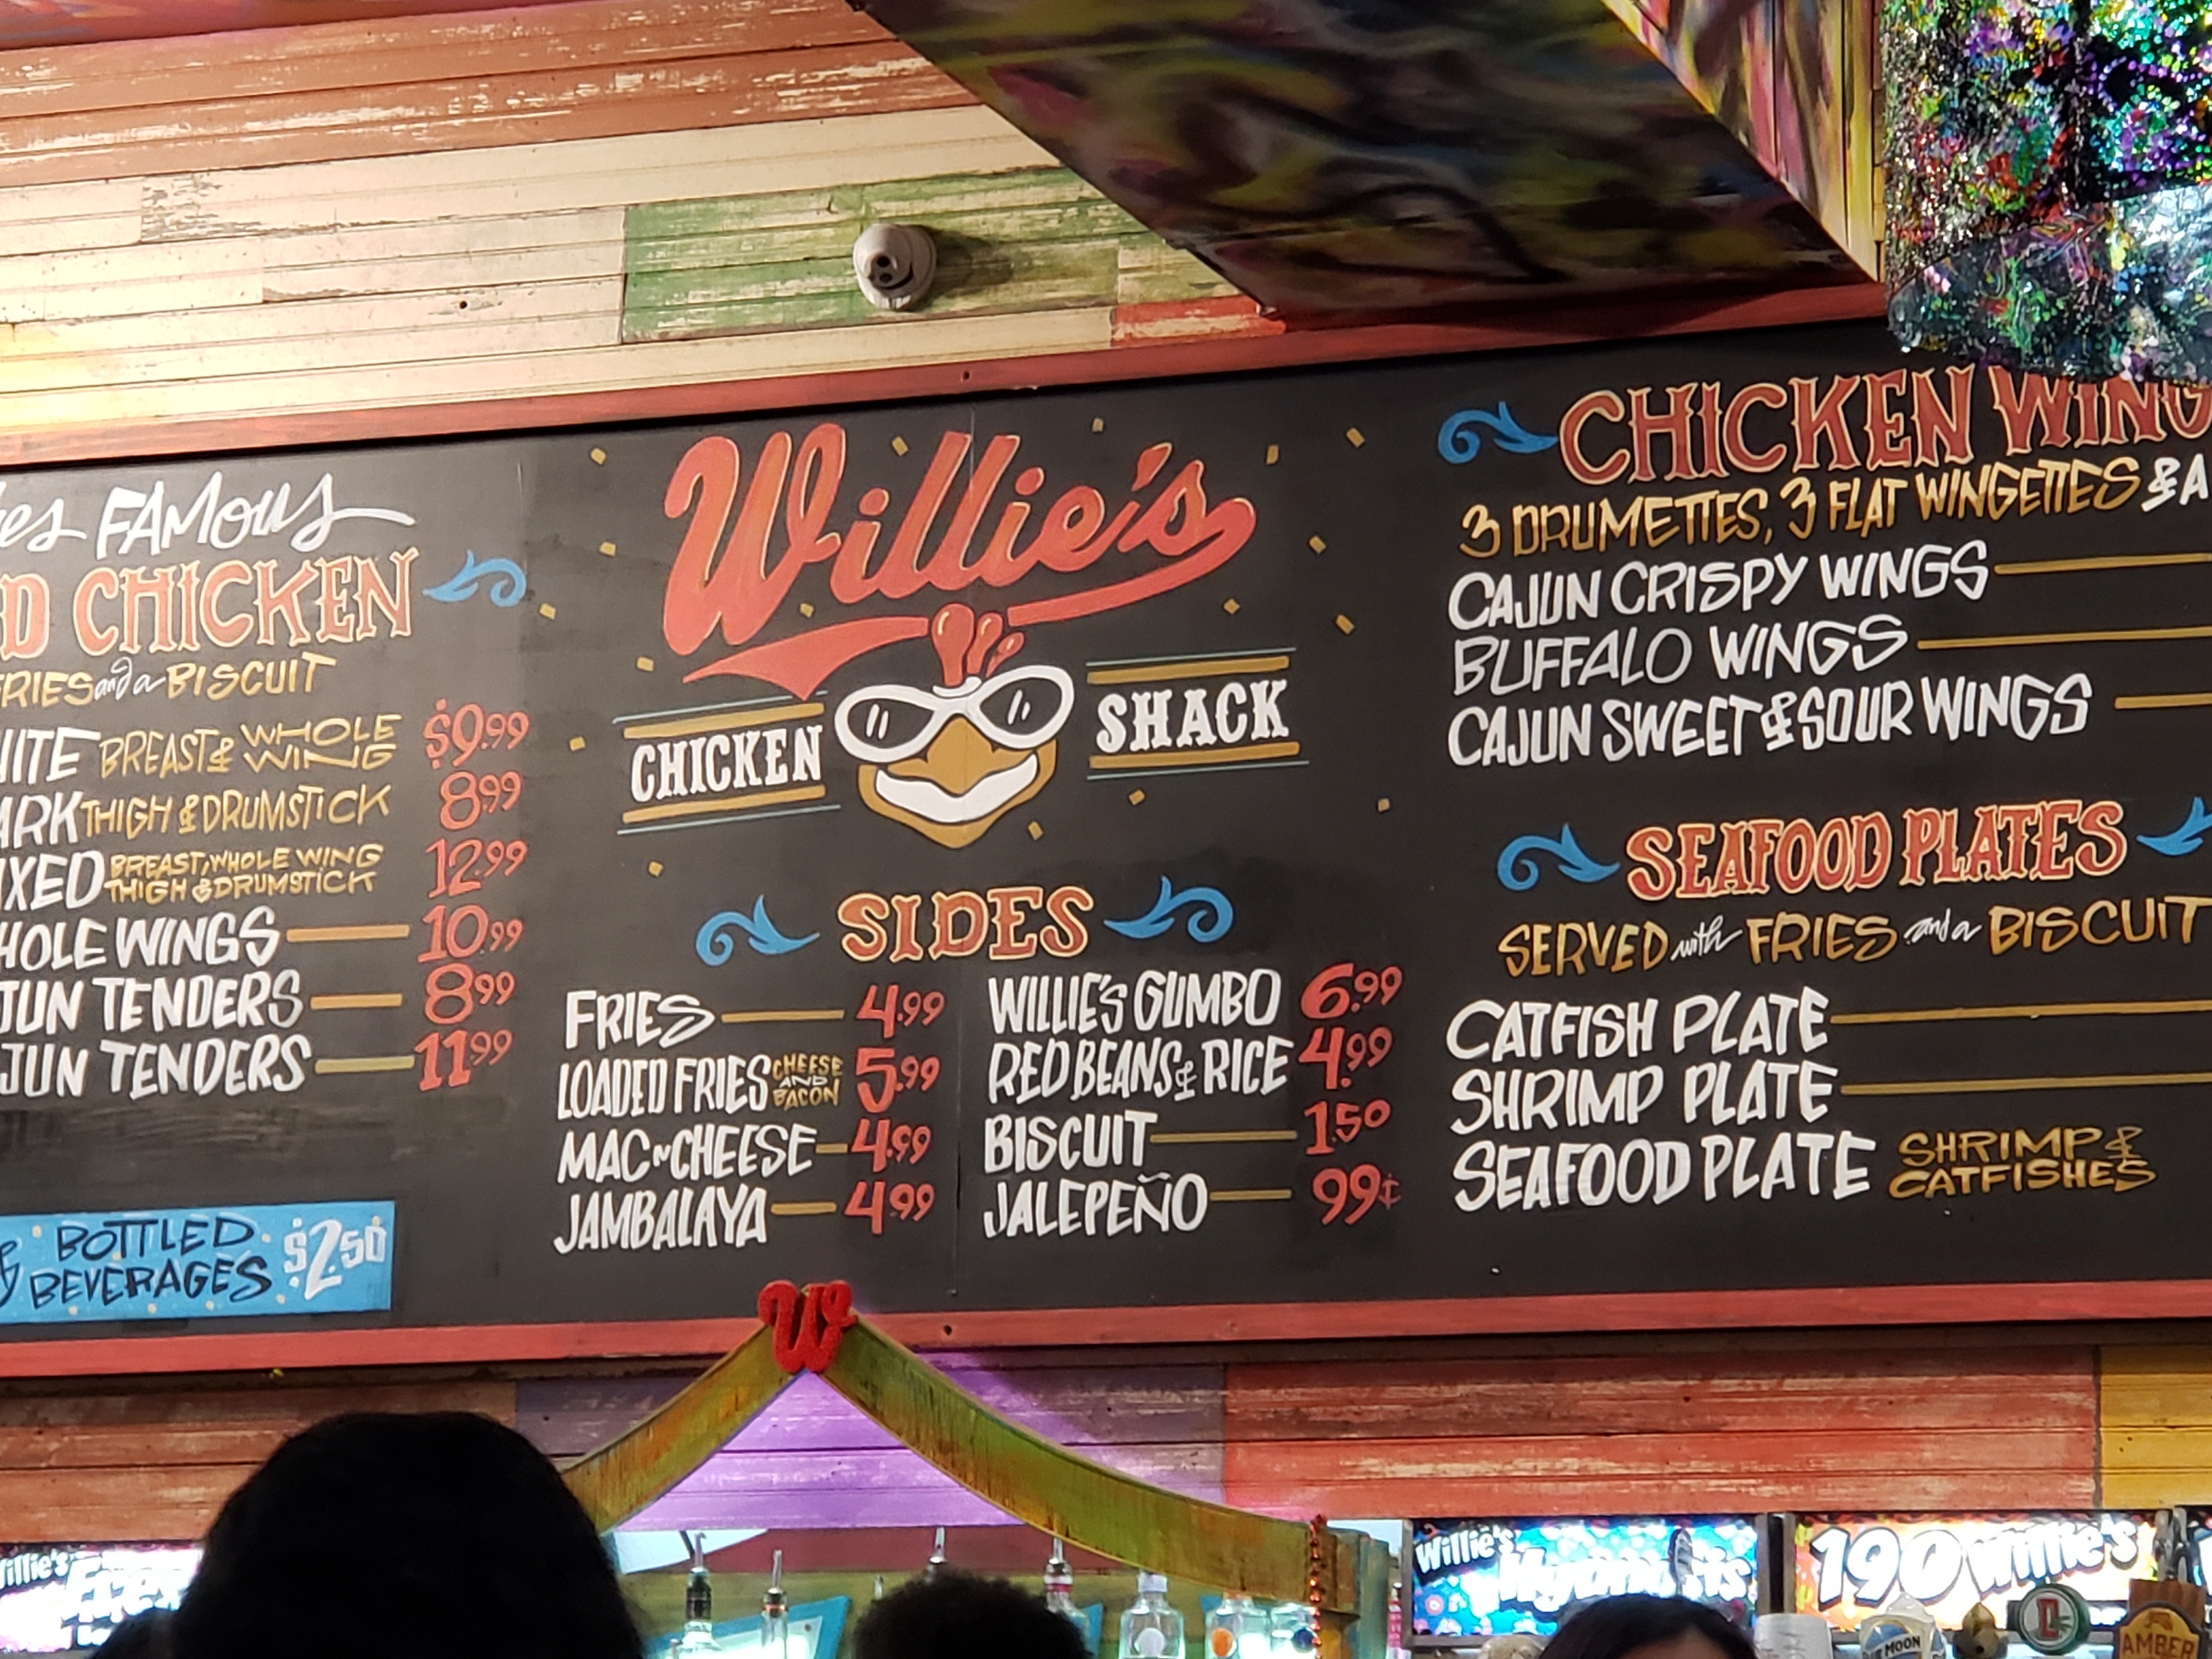 FAMOUS
CHICKEN
FRIES and a BISCUIT
BREAST & WHOLE WING $9.99
THIGH & DRUMSTICK 8.99
BREAST, WHOLE WING THIGH & DRUMSTICK 12.99
WINGS 10.99
TENDERS 8.99
TENDERS 11.99
BOTTLED BEVERAGES $2.50
Willie's
CHICKEN SHACK
SIDES
FRIES 4.99
LOADED FRIES CHEESE AND BACON 5.99
MAC~N~CHEESE 4.99
JAMBALAYA 4.99
WILLIE'S GUMBO 6.99
RED BEANS & RICE 4.99
BISCUIT 1.50
JALEPEÑO 99¢
CHICKEN WING
3 DRUMETTES, 3 FLAT WINGETTES & A
CAJUN CRISPY WINGS
BUFFALO WINGS
CAJUN SWEET & SOUR WINGS
SEAFOOD PLATES
SERVED with FRIES and a BISCUIT
CATFISH PLATE
SHRIMP PLATE
SEAFOOD PLATE SHRIMP & CATFISHES
W
Willie's
Willie's
190 Willie's
MOON
AMBER